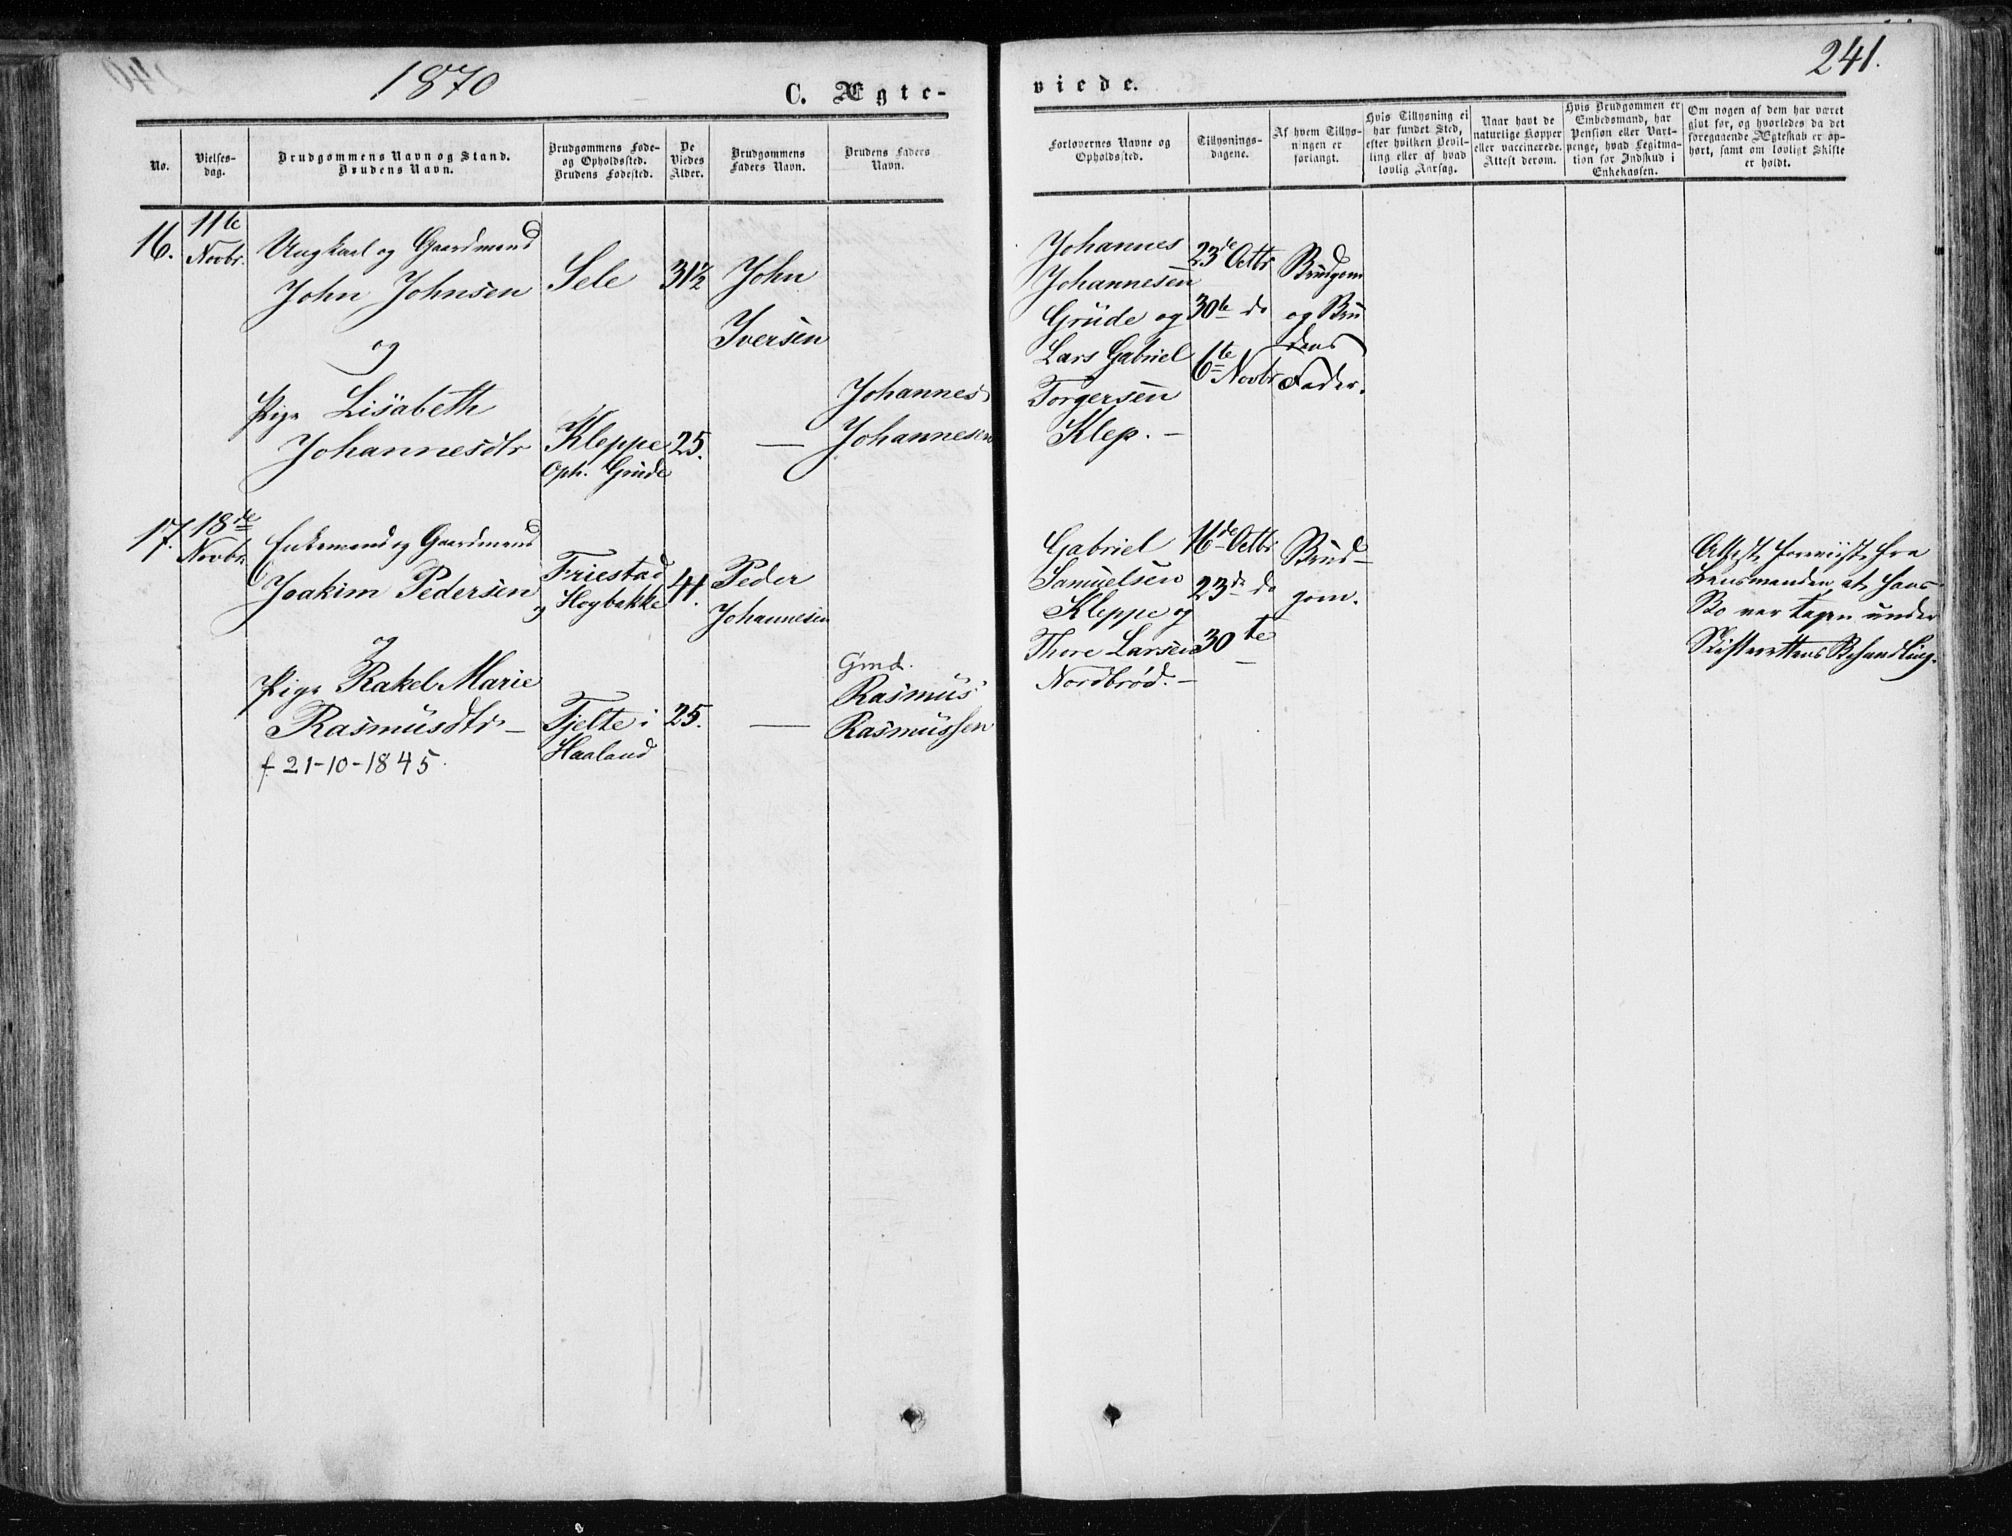 1870
C. Ægte-
No.
Vielses-
dag.
Brudgommens Navn og Stand.
Brudens Navn.
Brudgommens Føde-
og Opholdssted.
Brudens Fødested.
De
Viedes
Alder.
Brudgommens
Faders Navn.
Brudens Faders
Navn.
16.
11te
Novbr.
Ungkarl og Gaardmand
John Johnsen
og
Pige Lisabeth
Johannesdtr
Sele
Kleppe
Oph. Grude
31½
25.
John
Iversen
—
Johannes
Johannesen
17.
18de
Novbr.
Enkemand og Gaardmand
Joakim Pedersen
og
Pige Rakel Marie
Rasmusdtr –
f. 21-10-1845.
Friestad
og Høgbakke
Tjelte i
Haaland
41.
25.
Peder
Johannesen
—
Gmd.
Rasmus
Rasmussen
241.
viede.
Forlovernes Navne og
Opholdssted.
Tillysnings-
dagene.
Af hvem Tillys-
ningen er
forlangt.
Hvis Tillysning ei
har fundet Sted,
efter hvilken Bevil-
ling eller af hvad
lovlig Aarsag.
Naar havt de
naturlige Kopper
eller vaccinerede.
Attest derom.
Hvis Brudgommen er
Embedsmand, har
Pension eller Vart-
penge, hvad Legitima-
tion for Indskud i
Enkekassen.
Om nogen af dem har været
givt før, og hvorledes da det
foregaaende Ægteskab er op-
hørt, samt om lovligt Skifte
er holdt.
Johannes
Johannesen
Grude og
Lars Gabriel
Torgersen
Klep. –
23de Octbr
30te do
6te Novbr
Brudgom
og Bru
dens
Fader.
Gabriel
Samuelsen
Kleppe og
Thore Larsen
Nordbrød. –
16de Octbr
23de do
30te –
Brud-
gom.
Attest foreviist fra
Lensmanden, at hans
Bo var tagen under
Skifterettens Behandling.